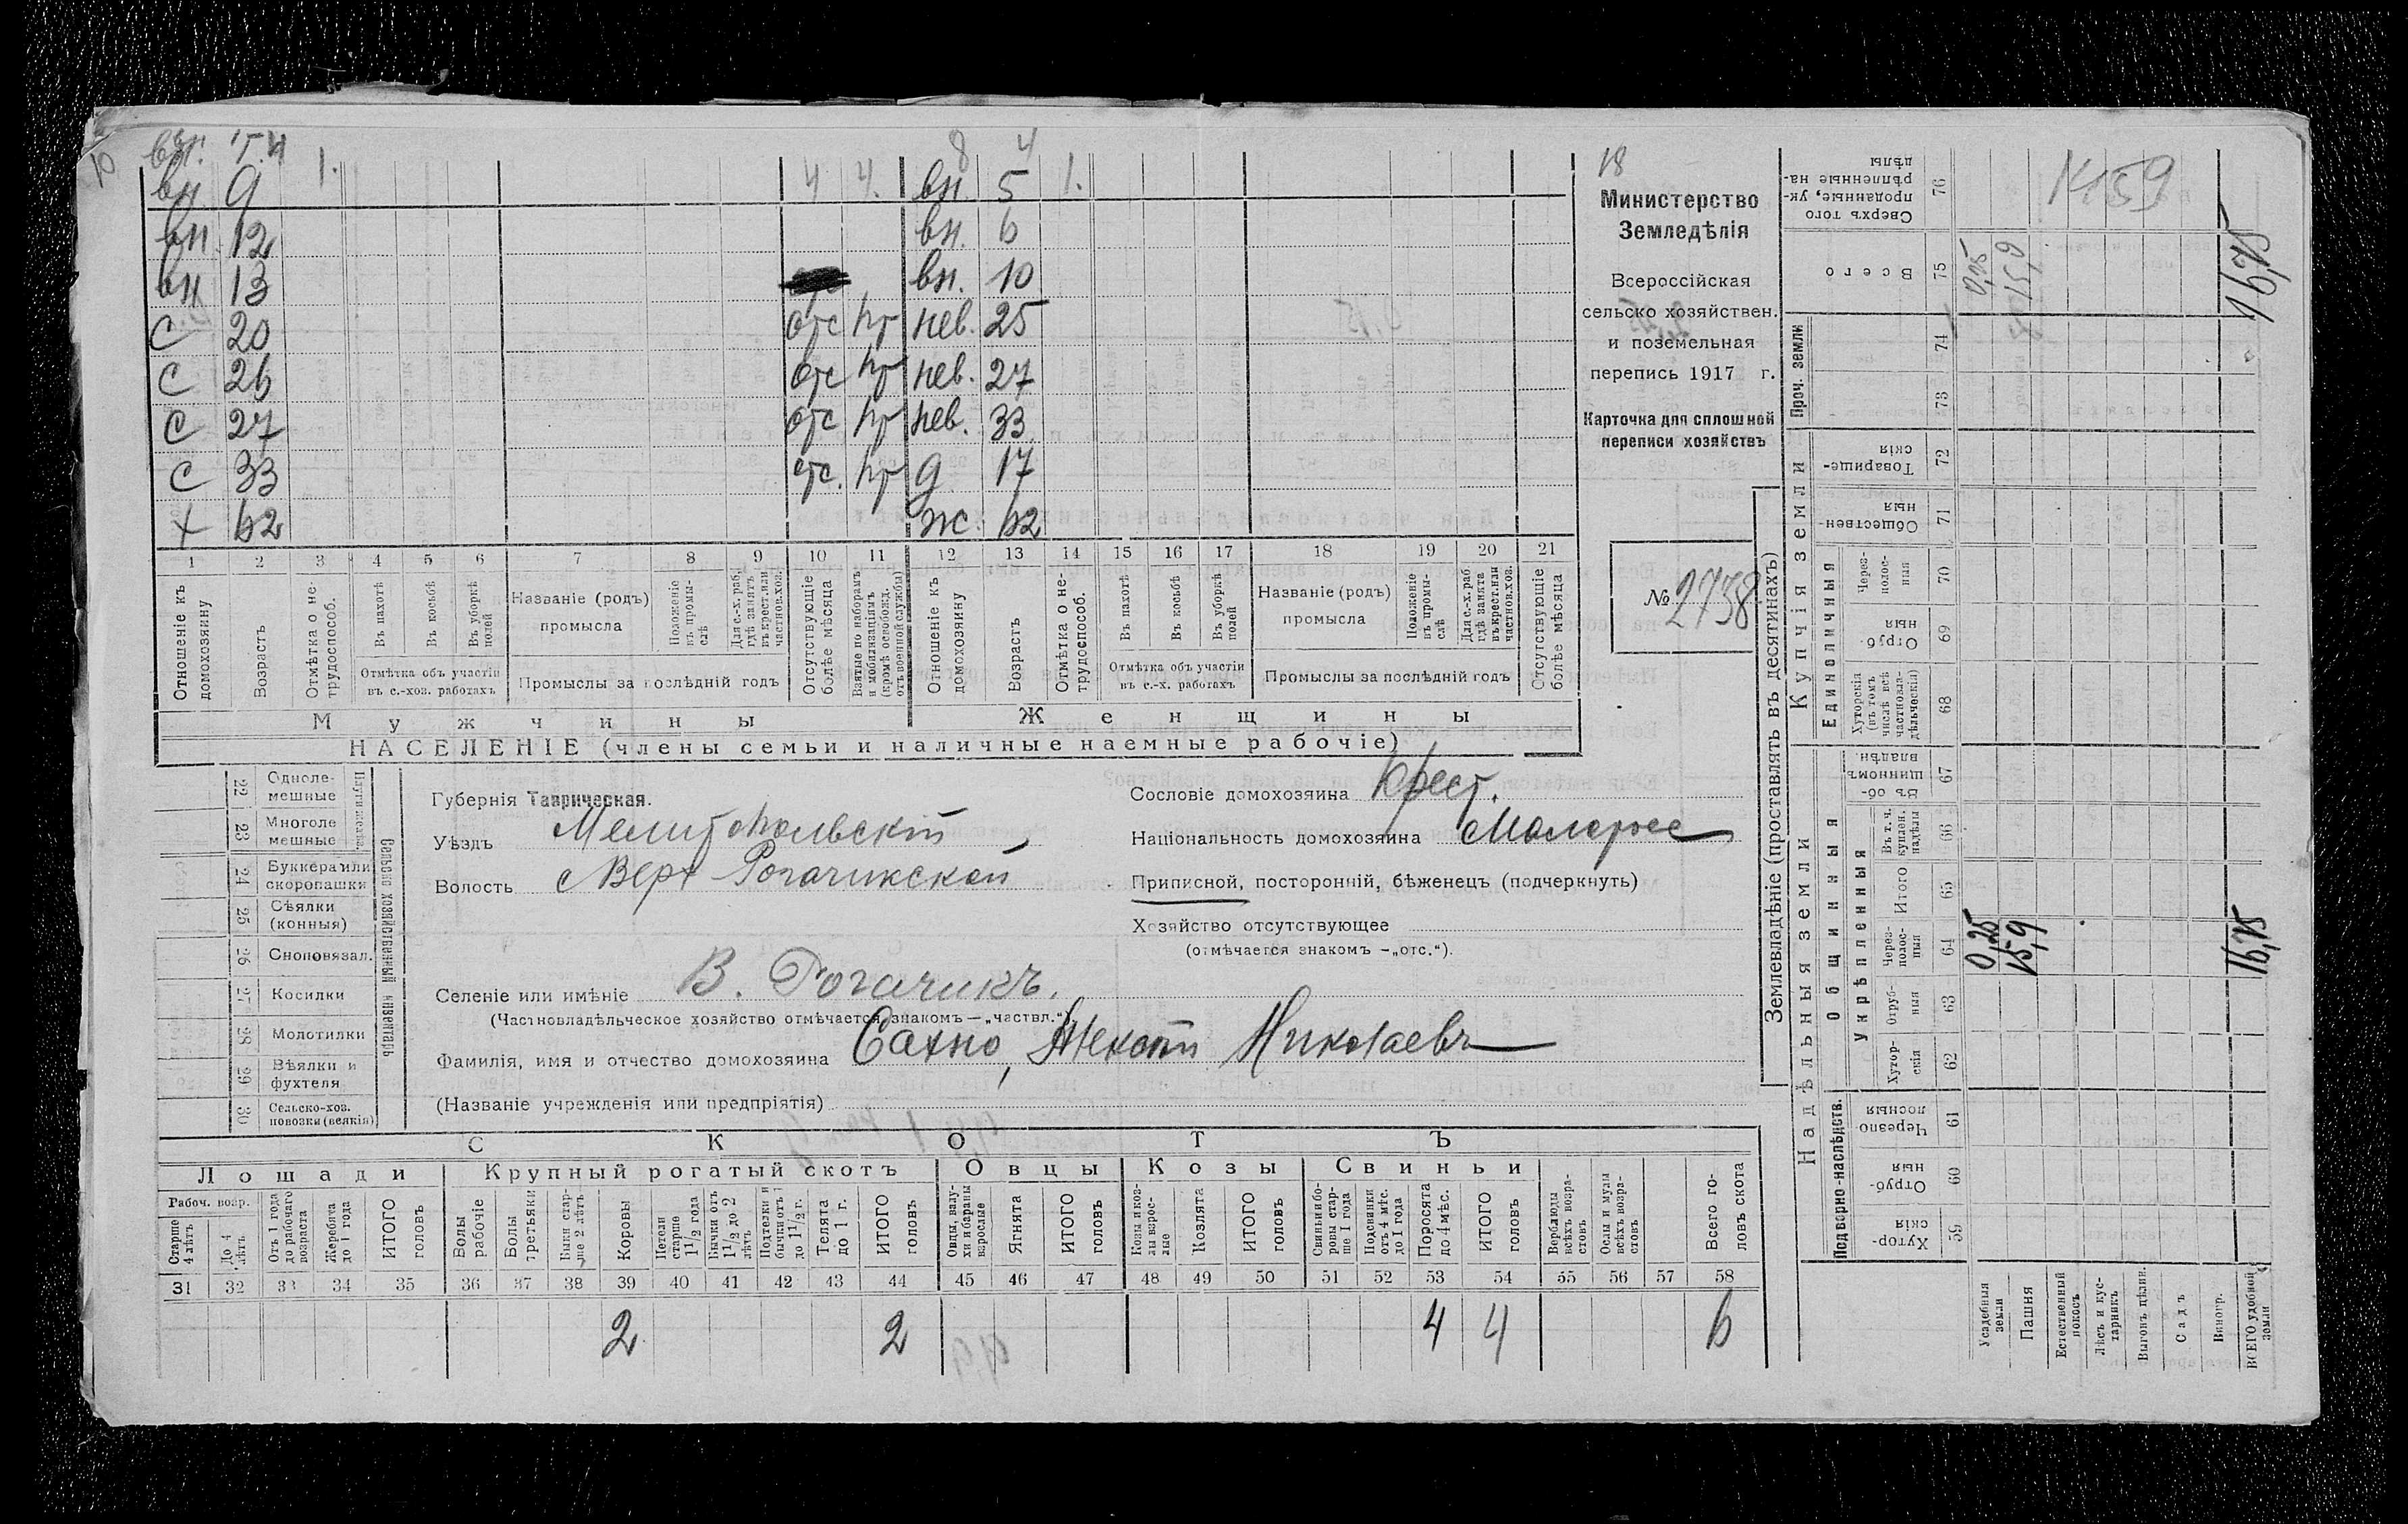 10 вн. 5 м 1. 8 4
вн 9 4 4. вн. 5 1.
вн. 12 вн. 6
вн 13 вн. 10
С 20 отс нт нев. 25
С 26 отс нт нев. 27
С 27 отс нт нев. 33
С 33 отс. нт д 17
х 62 ж. 62
1 2 3 4 5 6 7 8 9 10 11 12 13 14 15 16 17 18 19 20 21
Отношеніе къ домохозяину
Возрастъ
Отмѣтка о не-трудоспособ.
Въ пахотѣ
Въ косьбѣ
Въ уборкѣ полей
Отмѣтка объ участіи въ с.-хоз. работахъ
Названіе (родъ) промысла
Положеніе въ промы-слѣ
Для с.-х. раб. гдѣ занятъ въ крест. или частнов. хоз.
Промыслы за послѣдній годъ
Отсутствующіе болѣе мѣсяца
Взятые по наборамъ и мобилизаціямъ (кромѣ освобожд. отъ военной службы)
Отношеніе къ домохозяину
Возрастъ
Отмѣтка о не-трудоспособ.
Въ пахотѣ
Въ косьбѣ
Въ уборкѣ полей
Отмѣтка объ участіи въ с.-х. работахъ
Названіе (родъ) промысла
Положеніе въ промы-слѣ
Для с.-х. раб. гдѣ занята въ крест. или частнов. хоз.
Промыслы за послѣдній годъ
Отсутствующіе болѣе мѣсяца
Мужчины Женщины
НАСЕЛЕНІЕ (члены семьи и наличные наемные рабочіе)
18
Министерство
Земледѣлія
Всероссійская
сельско хозяйствен.
и поземельная
перепись 1917 г.
Карточка для сплошной
переписи хозяйствъ
№ 2738
22 Одноле-мешные
23 Многоле мешные
Плуги желѣз.
24 Буккера или скоропашки
25 Сѣялки (конныя)
26 Сноповязал.
27 Косилки
28 Молотилки
29 Вѣялки и фухтеля
30 Сельско-хоз. повозки (всякія)
Сельско хозяйственный инвентарь
Губернія Таврическая.
Уѣздъ Мелитопольскій
Волость Верх Рогачикской
Селеніе или имѣніе В. Рогачикъ.
(Частновладѣльческое хозяйство отмѣчается знакомъ — „частвл.“).
Фамилія, имя и отчество домохозяина Сахно, Николаевъ
(Названіе учрежденія или предпріятія)
Сословіе домохозяина Крест.
Національность домохозяина Малоросс
Приписной, посторонній, бѣженецъ (подчеркнуть)
Хозяйство отсутствующее
(отмѣчается знакомъ —„отс.“).
СКОТЪ
Лошади Крупный рогатый скотъ Овцы Козы Свиньи
Рабоч. возр.
Старше 4 лѣтъ
До 4 лѣтъ
Отъ 1 года до рабочаго возраста
Жеребята до 1 года
ИТОГО головъ
Волы рабочіе
Волы третьяки
Быки стар-ше 2 лѣтъ
Коровы
Нетели старше 1 1/2 года
Бычки отъ 1 1/2 до 2 лѣтъ
Подтелки и бычки отъ 1 до 1 1/2 г.
Телята до 1 г.
ИТОГО головъ
Овцы, валу-хи и бараны взрослые
Ягнята
ИТОГО головъ
Козы и коз-лы взрос-лые
Козлята
ИТОГО головъ
Свиньи и бо-ровы стар-ше 1 года
Подсвинки отъ 4 мѣс. до 1 года
Поросята до 4 мѣс.
ИТОГО головъ
Верблюды всѣхъ возра-стовъ
Ослы и мулы всѣхъ возра-стовъ
Всего го-ловъ скота
31 32 33 34 35 36 37 38 39 40 41 42 43 44 45 46 47 48 49 50 51 52 53 54 55 56 57 58
2 2 4 4 6
Землевладѣніе (проставлять въ десятинахъ)
Надѣльныя земли Купчія земли Проч. земли
Подворно-наслѣдств. Общинныя Единоличныя
Укрѣпленныя
Хутор-скія 59
Отруб-ныя 60
Черезпо лосныя 61
Хутор-скія 62
Отруб-ныя 63
Через-полос-ныя 64
Итого 65
Въ т. ч. куплен. надѣлы 66
Въ об-щинномъ владѣн. 67
Хуторскія (въ томъ числѣ всѣ частновла-дѣльческія) 68
Отруб-ныя 69
Через-полос-ныя 70
Обществен-ныя 71
Товарище-скія 72
73
74
Всего 75
Сверхъ того проданные, ук-рѣпленные на-дѣлы 76
Усадебныя земли 0,25 0,25
Пашня 15,9 15,9
Естественный покосъ
Лѣсъ и кус-тарникъ
Выгонъ цѣлин.
Садъ
Виногр.
ВСЕГО удобной земли 16,75 16,75
1459